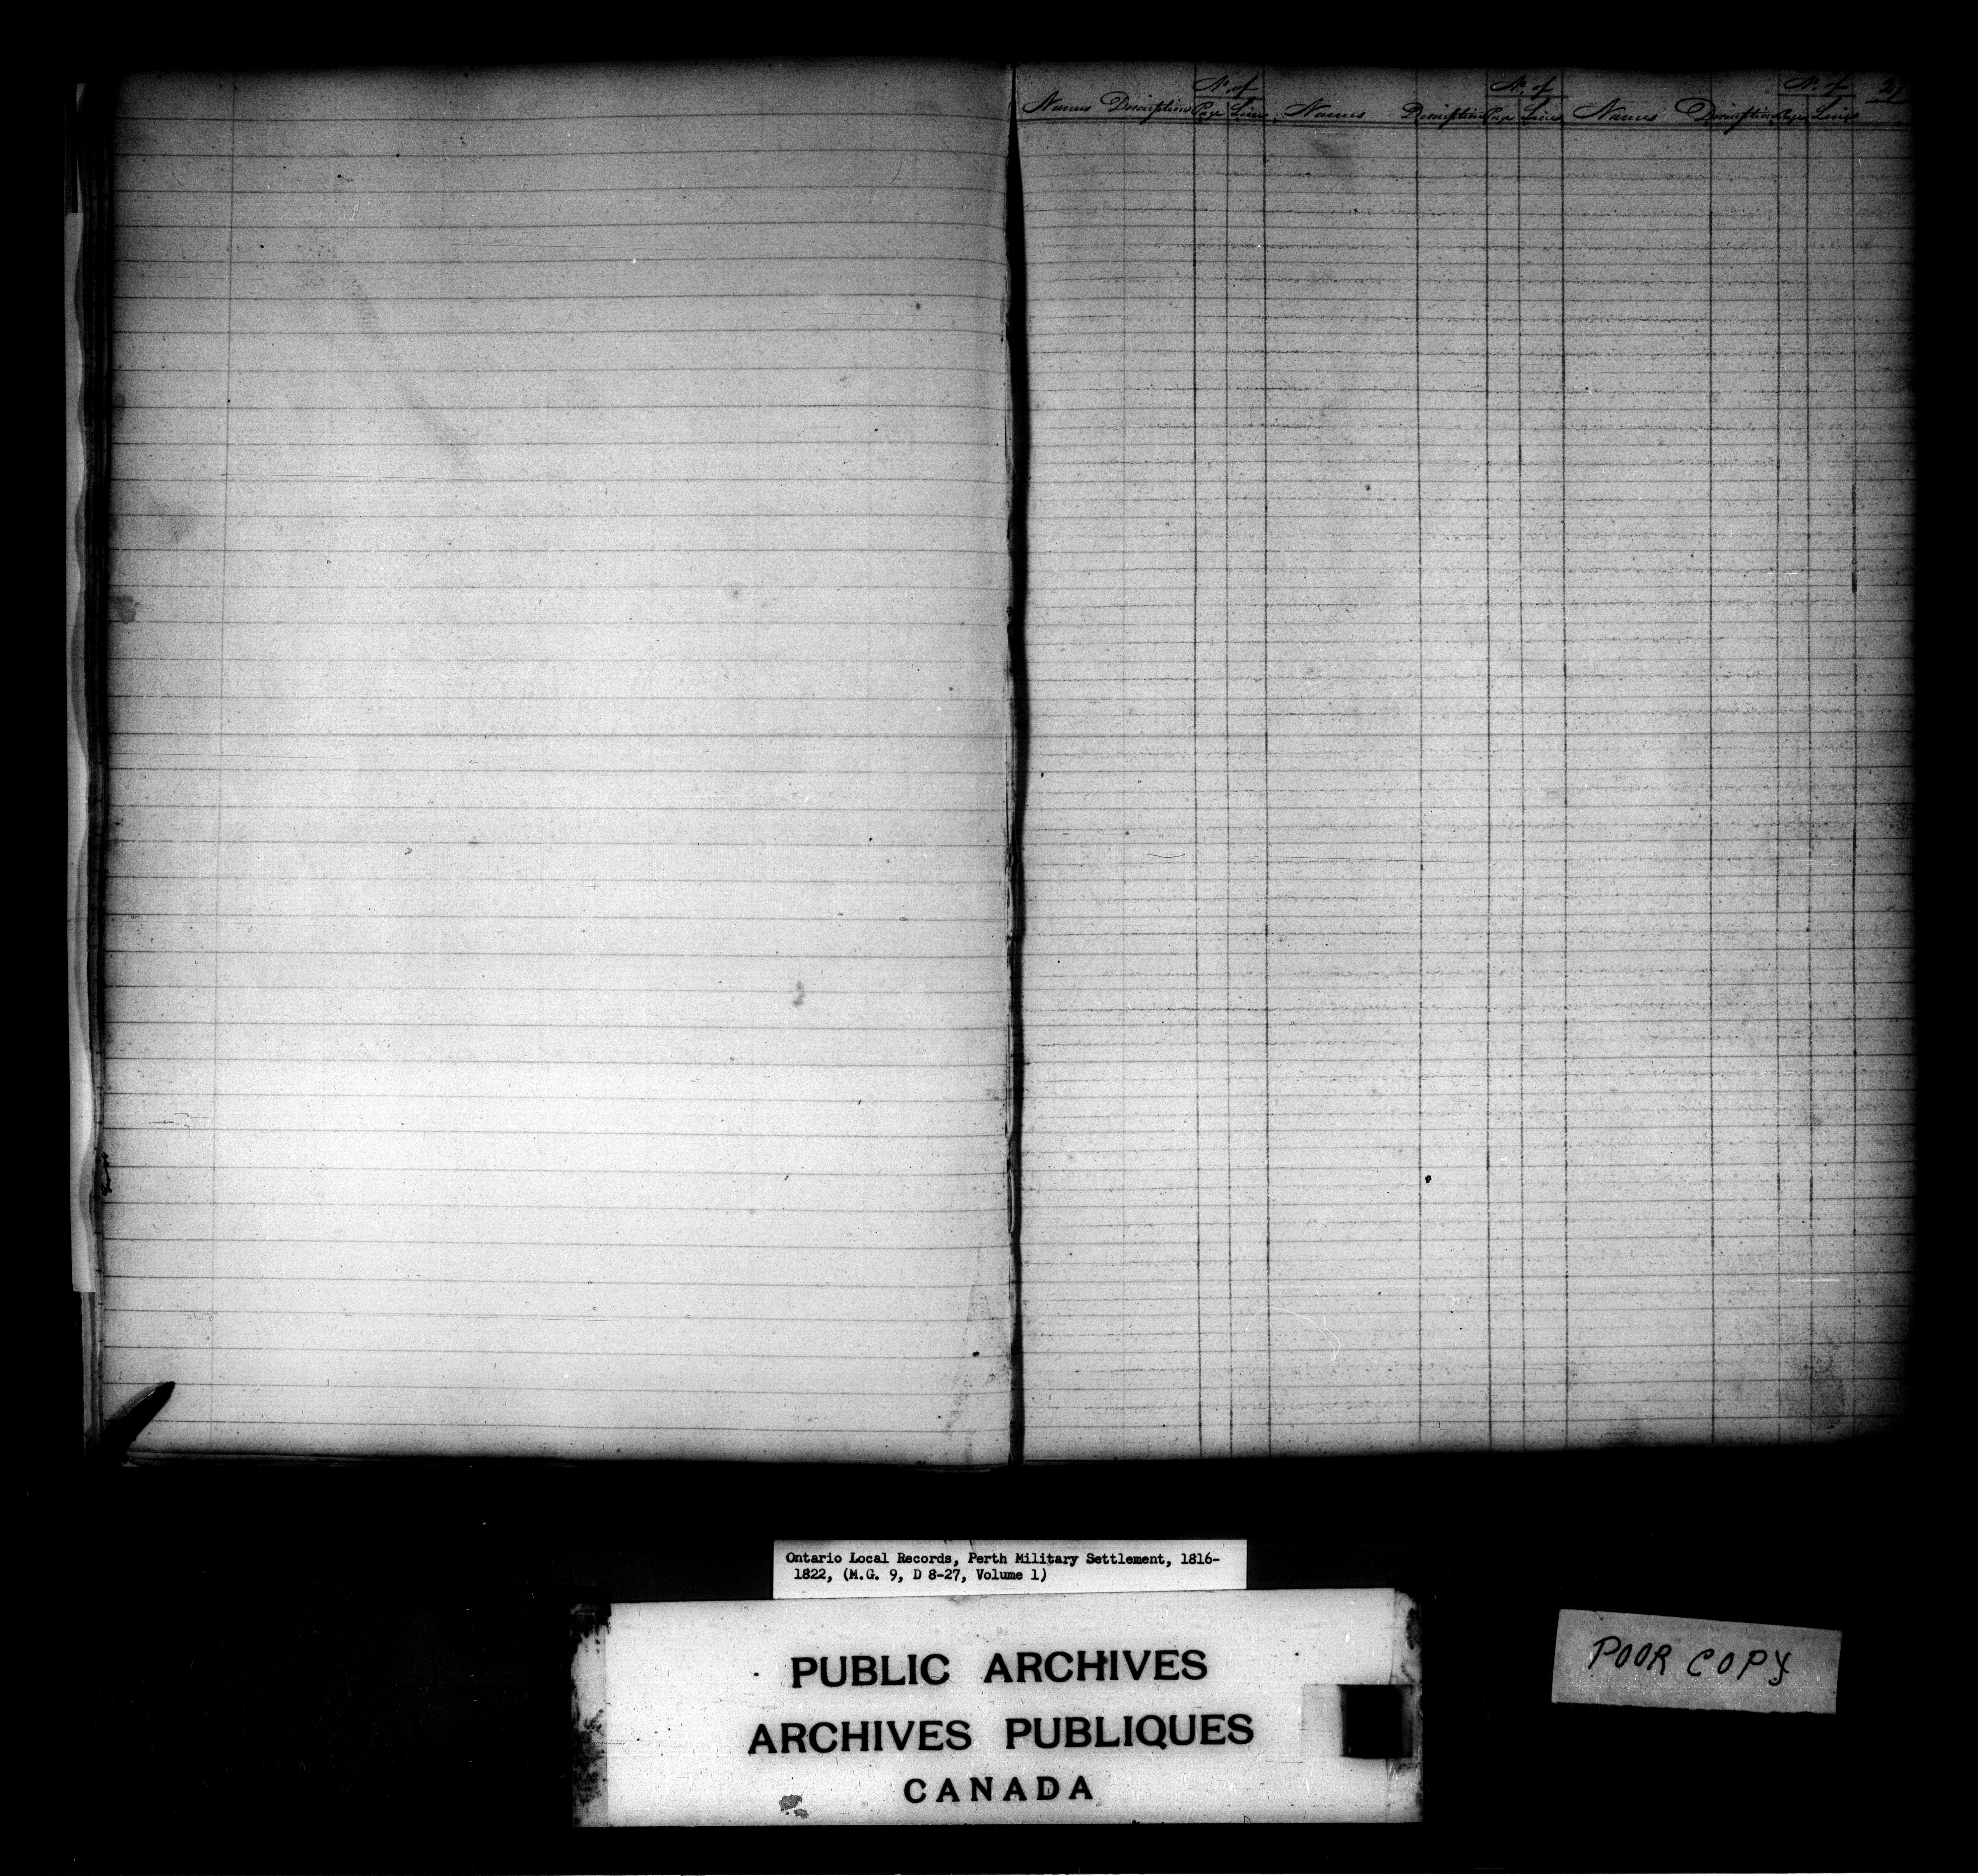 No. of No. of No. of
Names Description Page Line Names Description Page Lines Names Description Page Line
Ontario Local Records, Perth Military Settlement, 1816-
1822, (M.G. 9, D 8-27, Volume 1)
PUBLIC ARCHIVES
ARCHIVES PUBLIQUES
CANADA
POOR COPY